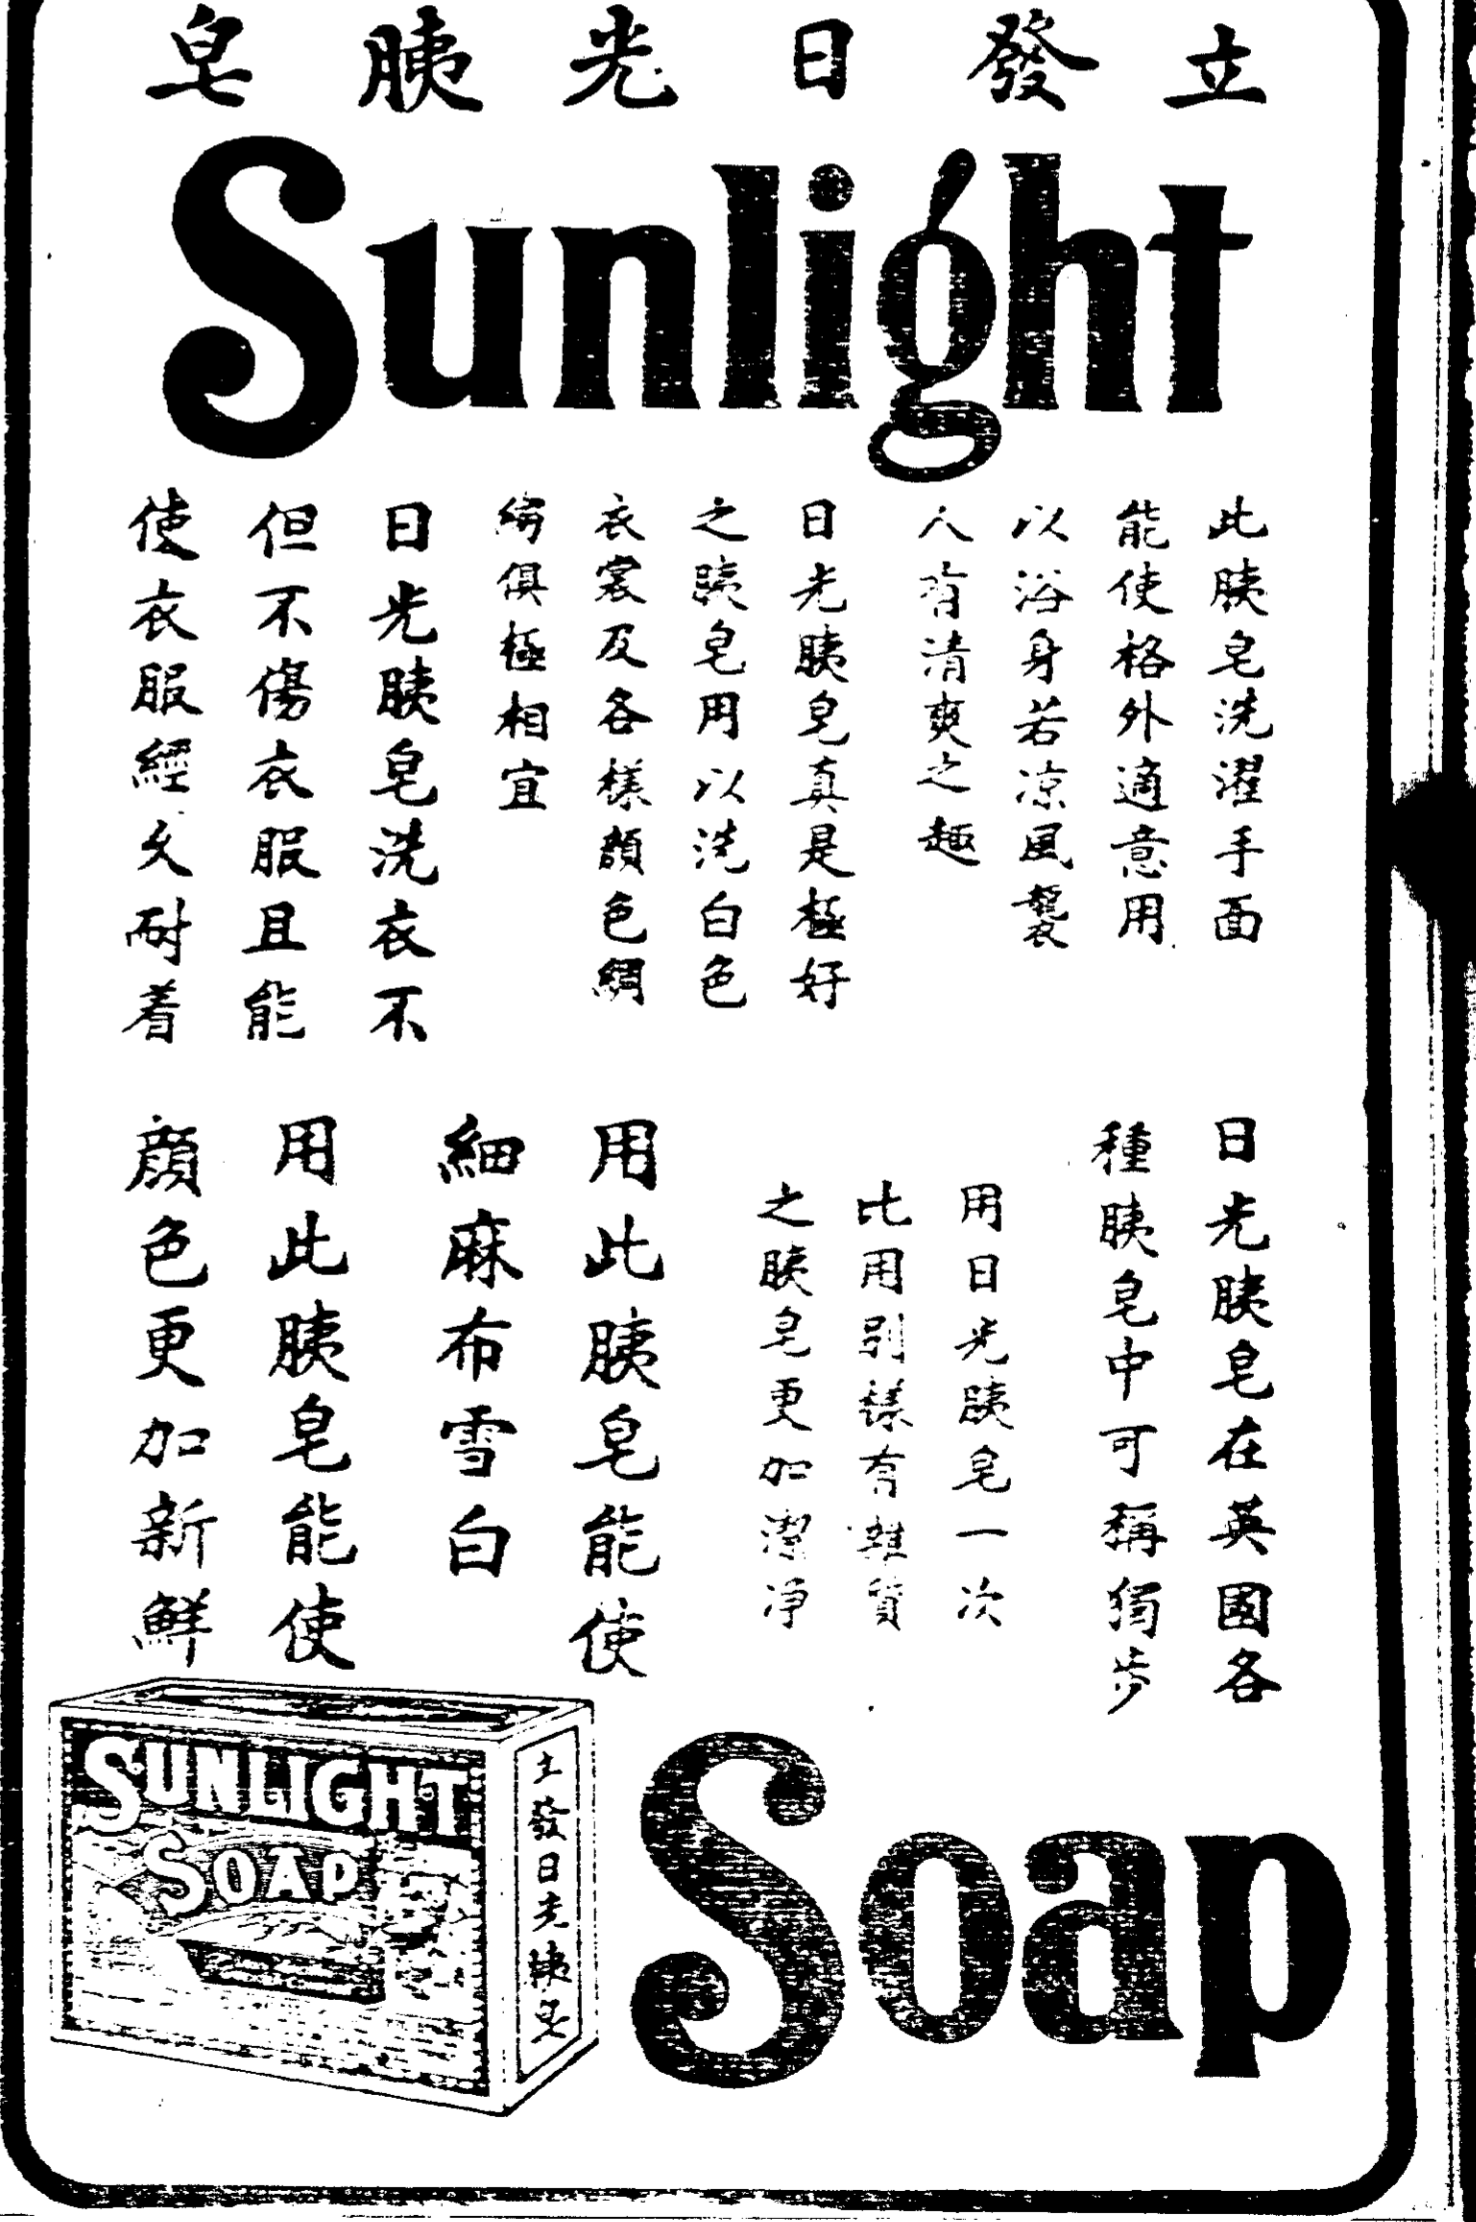 立發日光胰皂
Sunlight
此胰皂洗濯手面
能使格外適意用
以浴身若凉風襲
人有清爽之趣
日光胰皂真是極好
之胰皂用以洗白色
衣裳及各樣顏色綢
俱極相宜
日光胰皂洗衣不
但不傷衣服且能
使衣服經久耐着
日光胰皂在英國各
種胰皂中可稱獨步
用日光胰皂一次
比用別樣有雜質
之胰皂更加潔净
用此胰皂能使
細麻布雪白
用此胰皂能使
顔色更加新鮮
SUNLIGHT
SOAP
發日光胰皂
Soap